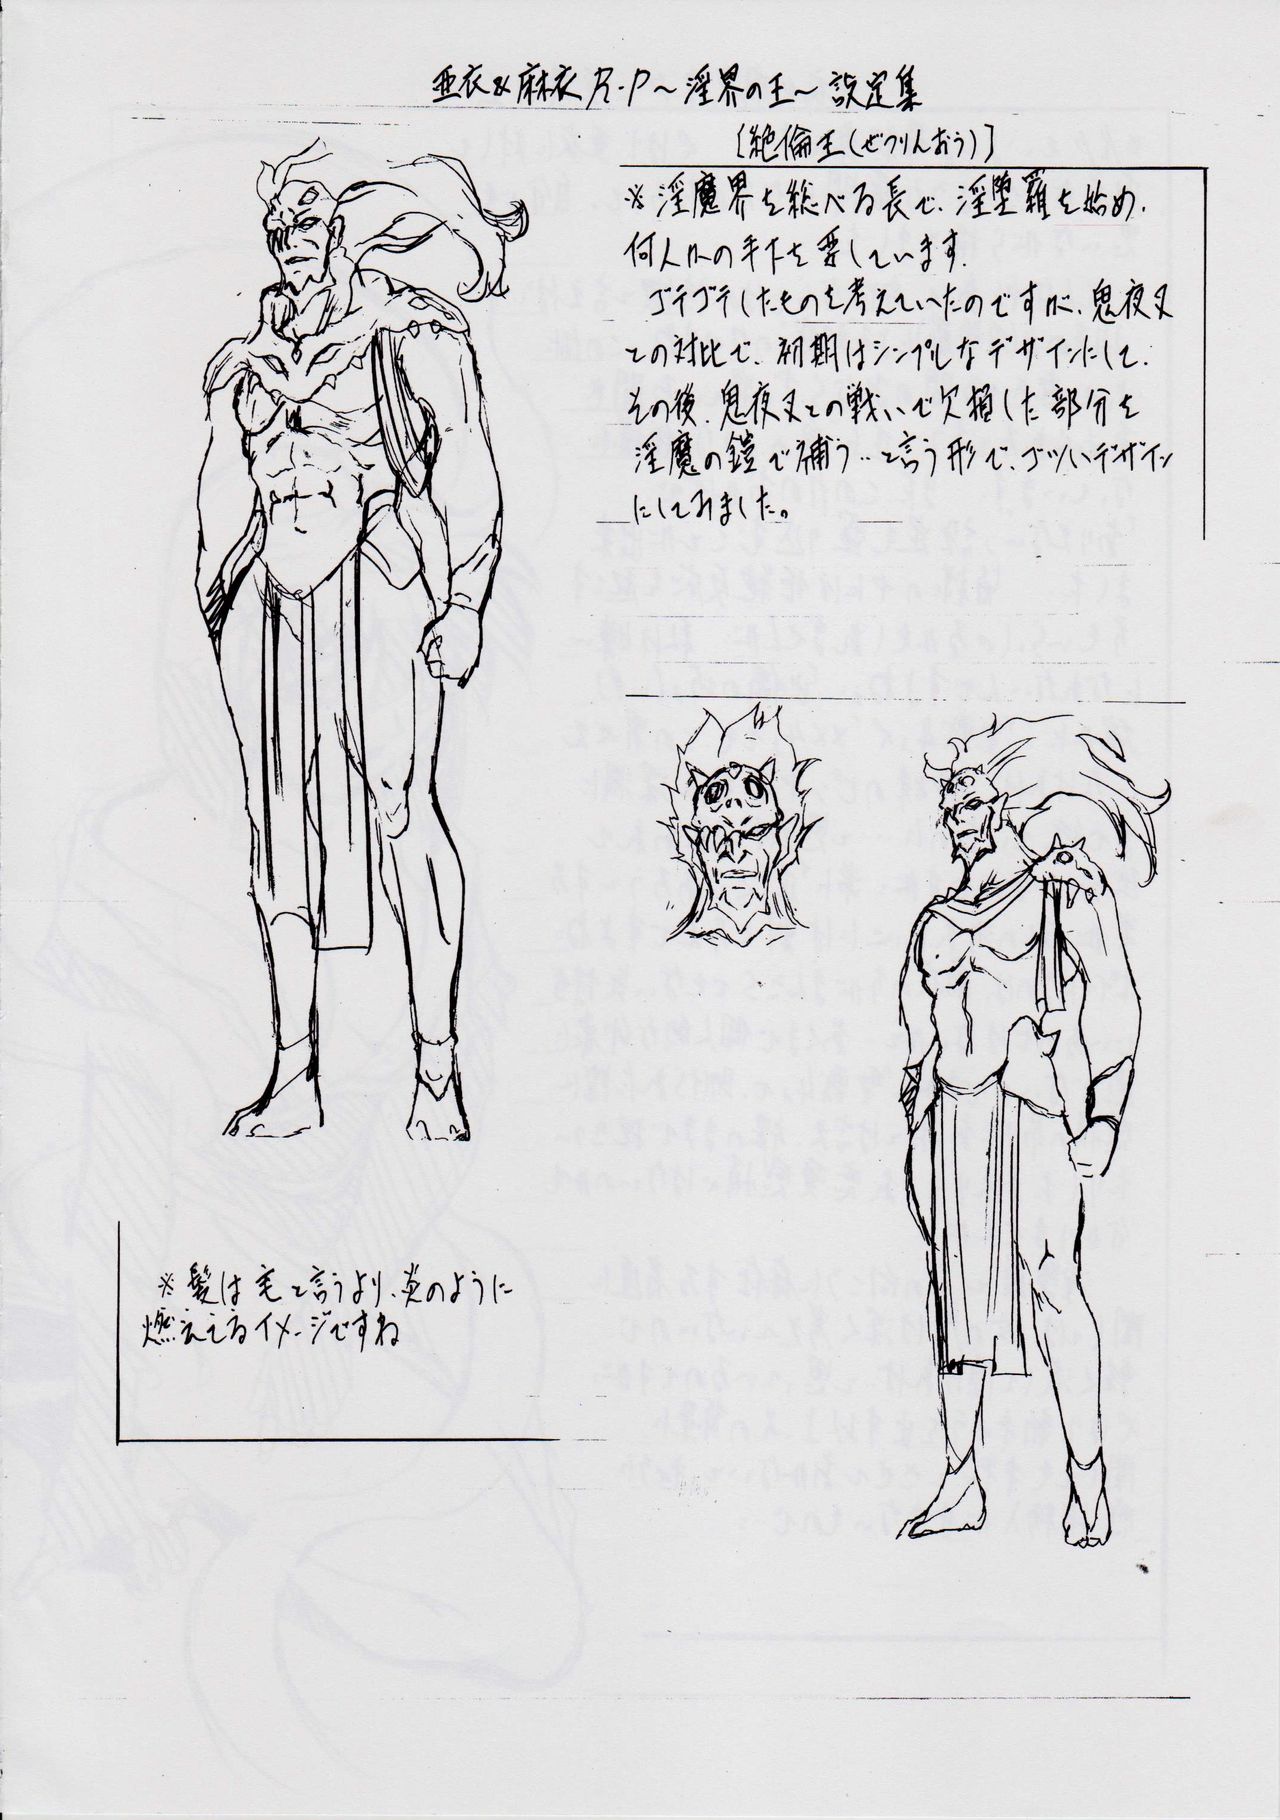 亜衣&麻衣 R-P～淫界の王～ 設定集
[絶倫王(ぜつりんおう)]
※淫魔界を総べる長で、淫堕羅を始め、
何人かの手下を要しています。
ゴテゴテしたものを考えていたのですが、鬼夜叉
との対比で、初期はシンプルなデザインにして、
その後、鬼夜叉との戦いで欠損した部分を
淫魔の鎧で補う‥と言う形で、ゴツいデザイン
にしてみました。
※髪は毛と言うより、炎のように
燃えてるイメージですね